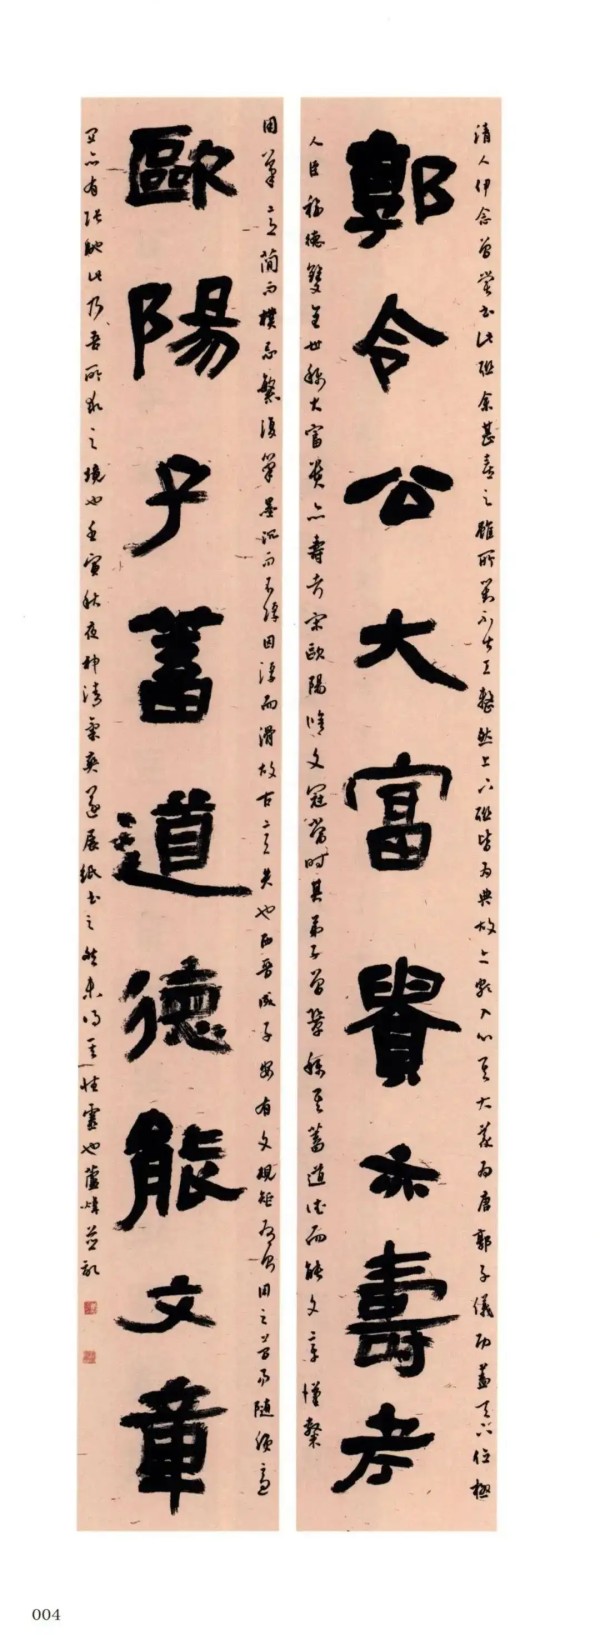 清人伊念曾嘗書此聯余甚喜之雖所對不甚工整然上下聯皆為典故上聯其大義為唐郭子儀功蓋天下位極
郭令公大富貴亦壽考
人臣福德雙至世稱大富貴亦壽考宋歐陽修文冠當時其弟子曾鞏稱其蓄道德而能文章謹繫
用筆言簡而樸忌繁複筆墨沉而不浮因浮而滑故古意失也西晉成子安有文規矩有則用之簡易隨
歐陽子蓄道德能文章
亦有張馳此乃吾所求之境也壬寅秋夜神清氣爽遂展紙書之然未得其性靈也蘆煒並記
004